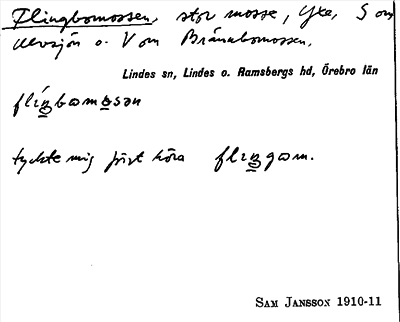 Flingbomossen, stor mosse, Yta, S om
Ulvsjön o. V om Brännbomossen.
Lindes sn, Lindes o. Ramsbergs hd, Örebro län
tyckte mig först höra
SAM JANSSON 1910-11